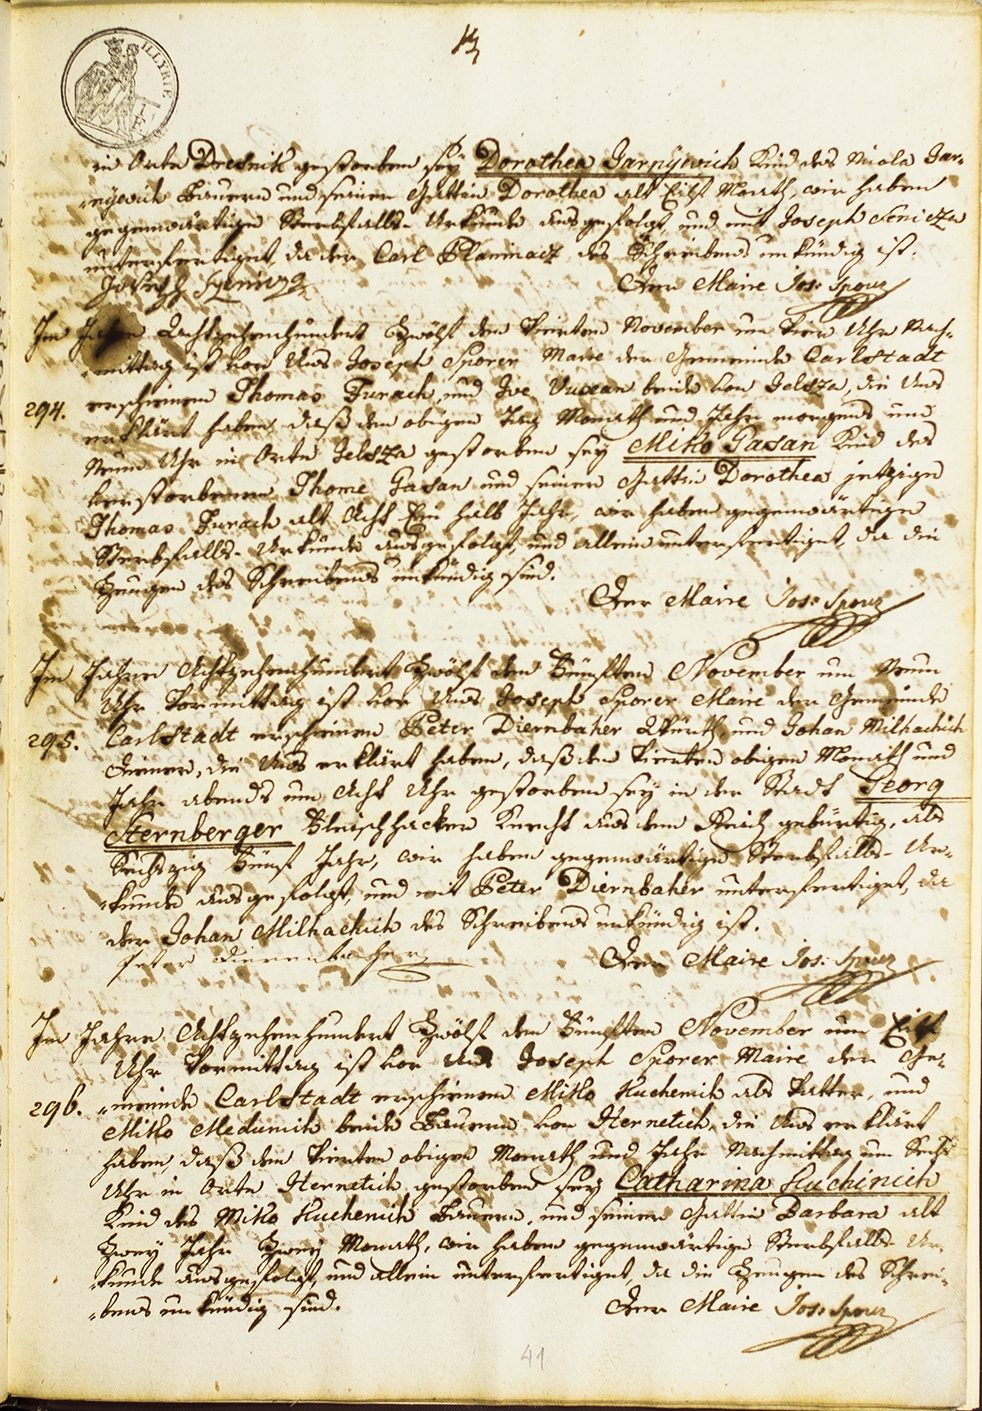 ILLYRIE
in Orte Dresnik gestorben sey Dorothea Jarnÿewich Kind des Nicola Jar-
nyewich Bauern und seiner Gattin Dorothea alt Eilf Monath, wir haben
gegenwärtige Sterbfalls-Urkunde ausgefolgt, und mit Joseph Senicza
unterfertiget, da der Carl Planinacz des Schreibens unkündig ist.
Der Maire Jos: Sporer
Im Jahre Achtzehenhundert Zwölf den Vierten November um Vier Uhr Nach-
mittag ist vor Uns Joseph Sporer Maire der Gemeinde Carlstadt
294. erschienen Thomas Furach, und Ive Vucean beide von Jelsza, die Uns
erklärt haben, daß den obigen Tag Monath und Jahr morgens um
Neun Uhr in Orte Jelsza gestorben sey Miko Gasan Kind des
verstorbenen Thome Gasan und seiner Gattin Dorothea jetzige
Thomas Furach alt Acht Ein halb Jahr, wir haben gegenwärtige
Sterbfalls-Urkunde ausgefolgt, und allein unterfertiget, da die
Zeugen des Schreibens unkündig sind.
Der Maire Jos: Sporer
Im Jahre Achtzehenhundert Zwölf den Fünften November um Neun
Uhr Vormittag ist vor Uns Joseph Sporer Maire der Gemeinde
295. Carlstadt erschienen Peter Diernbaher Wirth, und Johan Milhachich
Diener, die Uns erklärt haben, daß den Vierten obigen Monath und
Jahr abends um Acht Uhr gestorben sey in der Stadt Georg
Sternberger Fleischhacker Knecht aus dem Reich gebürtig, alt
Sechszig Fünf Jahr, wir haben gegenwärtige Sterbfalls-Ur-
kunde ausgefolgt, und mit Peter Diernbaher unterfertiget, da
der Johan Milhachich des Schreibens unkündig ist.
Peter Dierenbacher
Der Maire Jos: Sporer
Im Jahre Achtzehenhundert Zwölf den Fünften November um Eilf
Uhr Vormittag ist vor Uns Joseph Sporer Maire der Ge-
296. meinde Carlstadt erschienen Miko Kuchenich als Vatter, und
Miko Medunich beide Bauern von Hernetich, die Uns erklärt
haben, daß den Vierten obigen Monath und Jahr Nachmittag um Sechs
Uhr in Orte Hernetich gestorben sey Catharina Kuchinich
Kind des Miko Kuchenich Bauern, und seiner Gattin Barbara alt
Zwey Jahr Zwey Monath, wir haben gegenwärtige Sterbfalls Ur-
kunde ausgefolgt, und allein unterfertiget, da die Zeugen des Schrei-
bens unkündig sind.
Der Maire Jos: Sporer
41